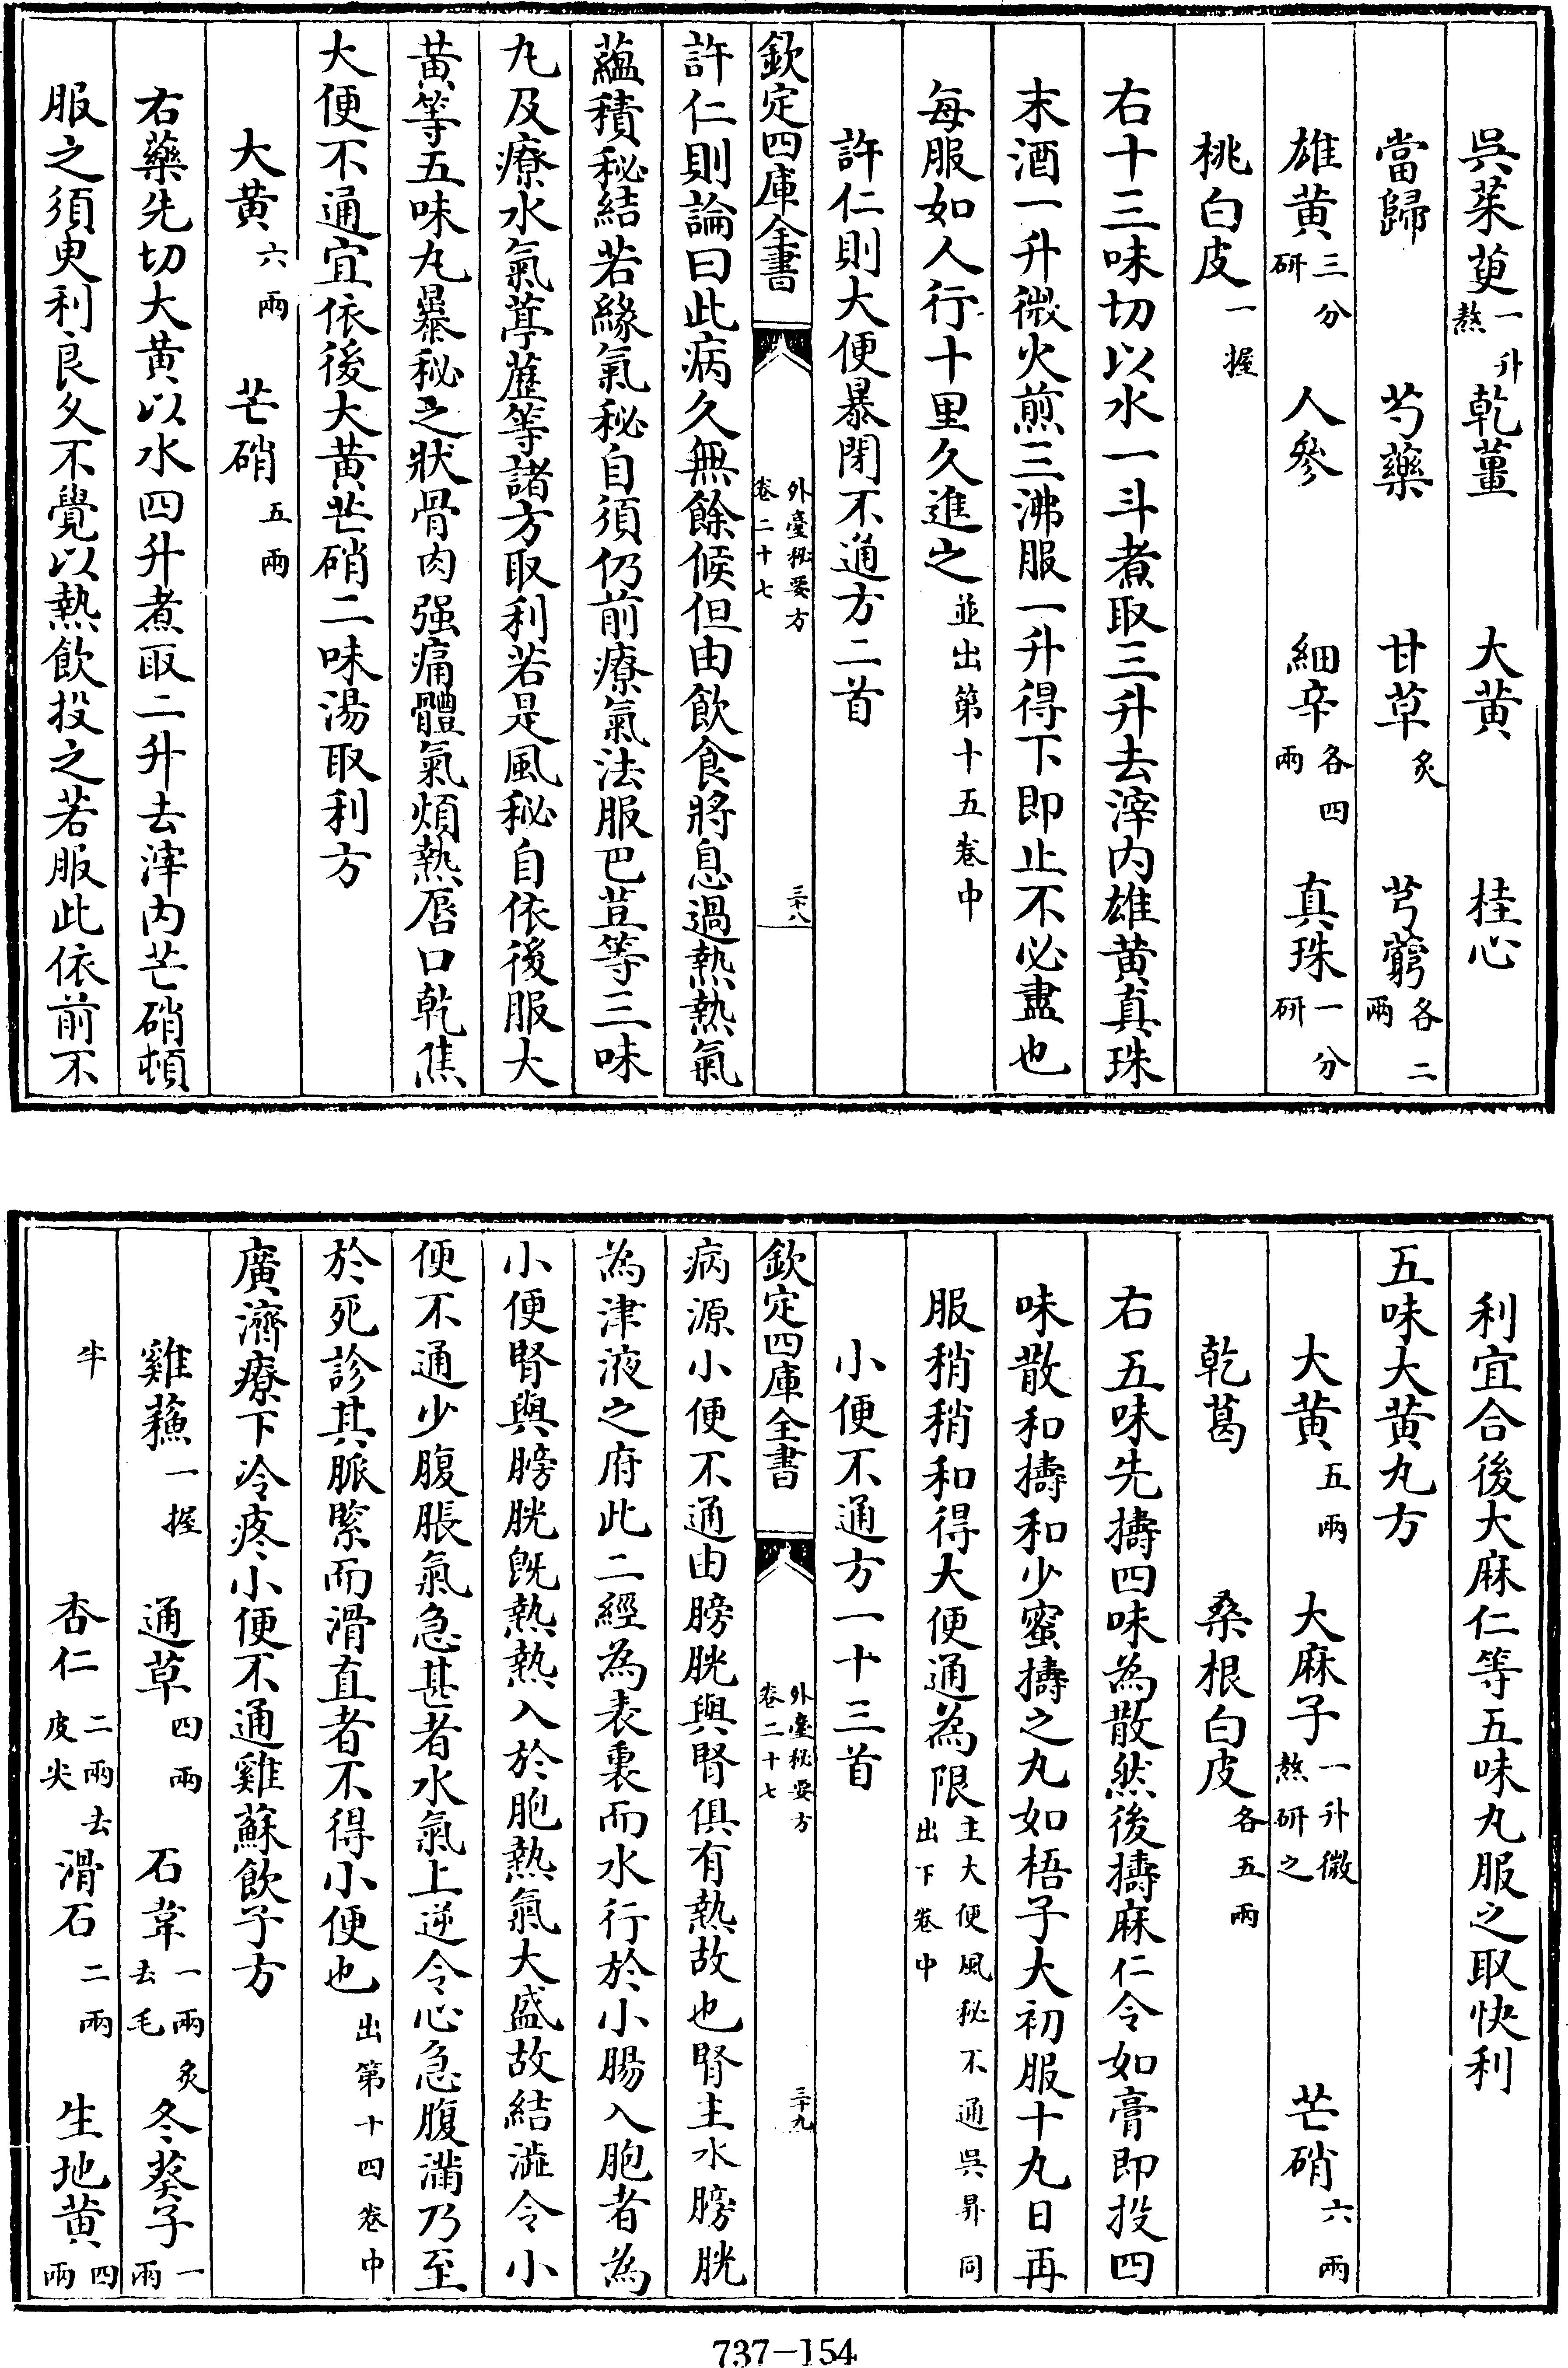 吳茱萸一升熬 乾薑 大黄 桂心
當歸 芍藥 甘草炙 芎藭各二兩
雄黄三分研 人參 細辛各四兩 真珠一分研
桃白皮一握
右十三味切以水一斗煮取三升去滓内雄黄真珠
末酒一升微火煎三沸服一升得下即止不必盡也
每服如人行十里久進之並出第十五卷中
許仁則大便暴閉不通方二首
欽定四庫全書 外臺秘要方卷二十七 三十八
許仁則論曰此病久無餘候但由飲食將息過熱熱氣
蘊積秘結若緣氣秘自須仍前療氣法服巴荳等三味
丸及療水氣葶藶等諸方取利若是風秘自依後服大
黄等五味丸暴秘之狀骨肉强痛體氣煩熱唇口乾焦
大便不通宜依後大黄芒硝二味湯取利方
大黄六兩 芒硝五兩
右藥先切大黄以水四升煮取二升去滓内芒硝頓
服之須臾利良久不覺以熱飲投之若服此依前不
利宜合後大麻仁等五味丸服之取快利
五味大黄丸方
大黄五兩 大麻子一升微熬研之 芒硝六兩
乾葛 桑根白皮各五兩
右五味先擣四味為散然後擣麻仁令如膏即投四
味散和擣和少蜜擣之丸如梧子大初服十丸日再
服稍稍和得大便通為限主大便風秘不通吳昇同出下卷中
小便不通方一十三首
欽定四庫全書 外臺秘要方卷二十七 三十九
病源小便不通由膀胱與腎俱有熱故也腎主水膀胱
為津液之府此二經為表裏而水行於小腸入胞者為
小便腎與膀胱既熱熱入於胞熱氣大盛故結澁令小
便不通少腹脹氣急甚者水氣上逆令心急腹滿乃至
於死診其脈緊而滑直者不得小便也出第十四卷中
廣濟療下冷疼小便不通雞蘇飲子方
雞蘓一握 通草四兩 石韋一兩炙去毛 冬葵子一兩
半 杏仁二兩去皮尖 滑石二兩 生地黄四兩
737-154